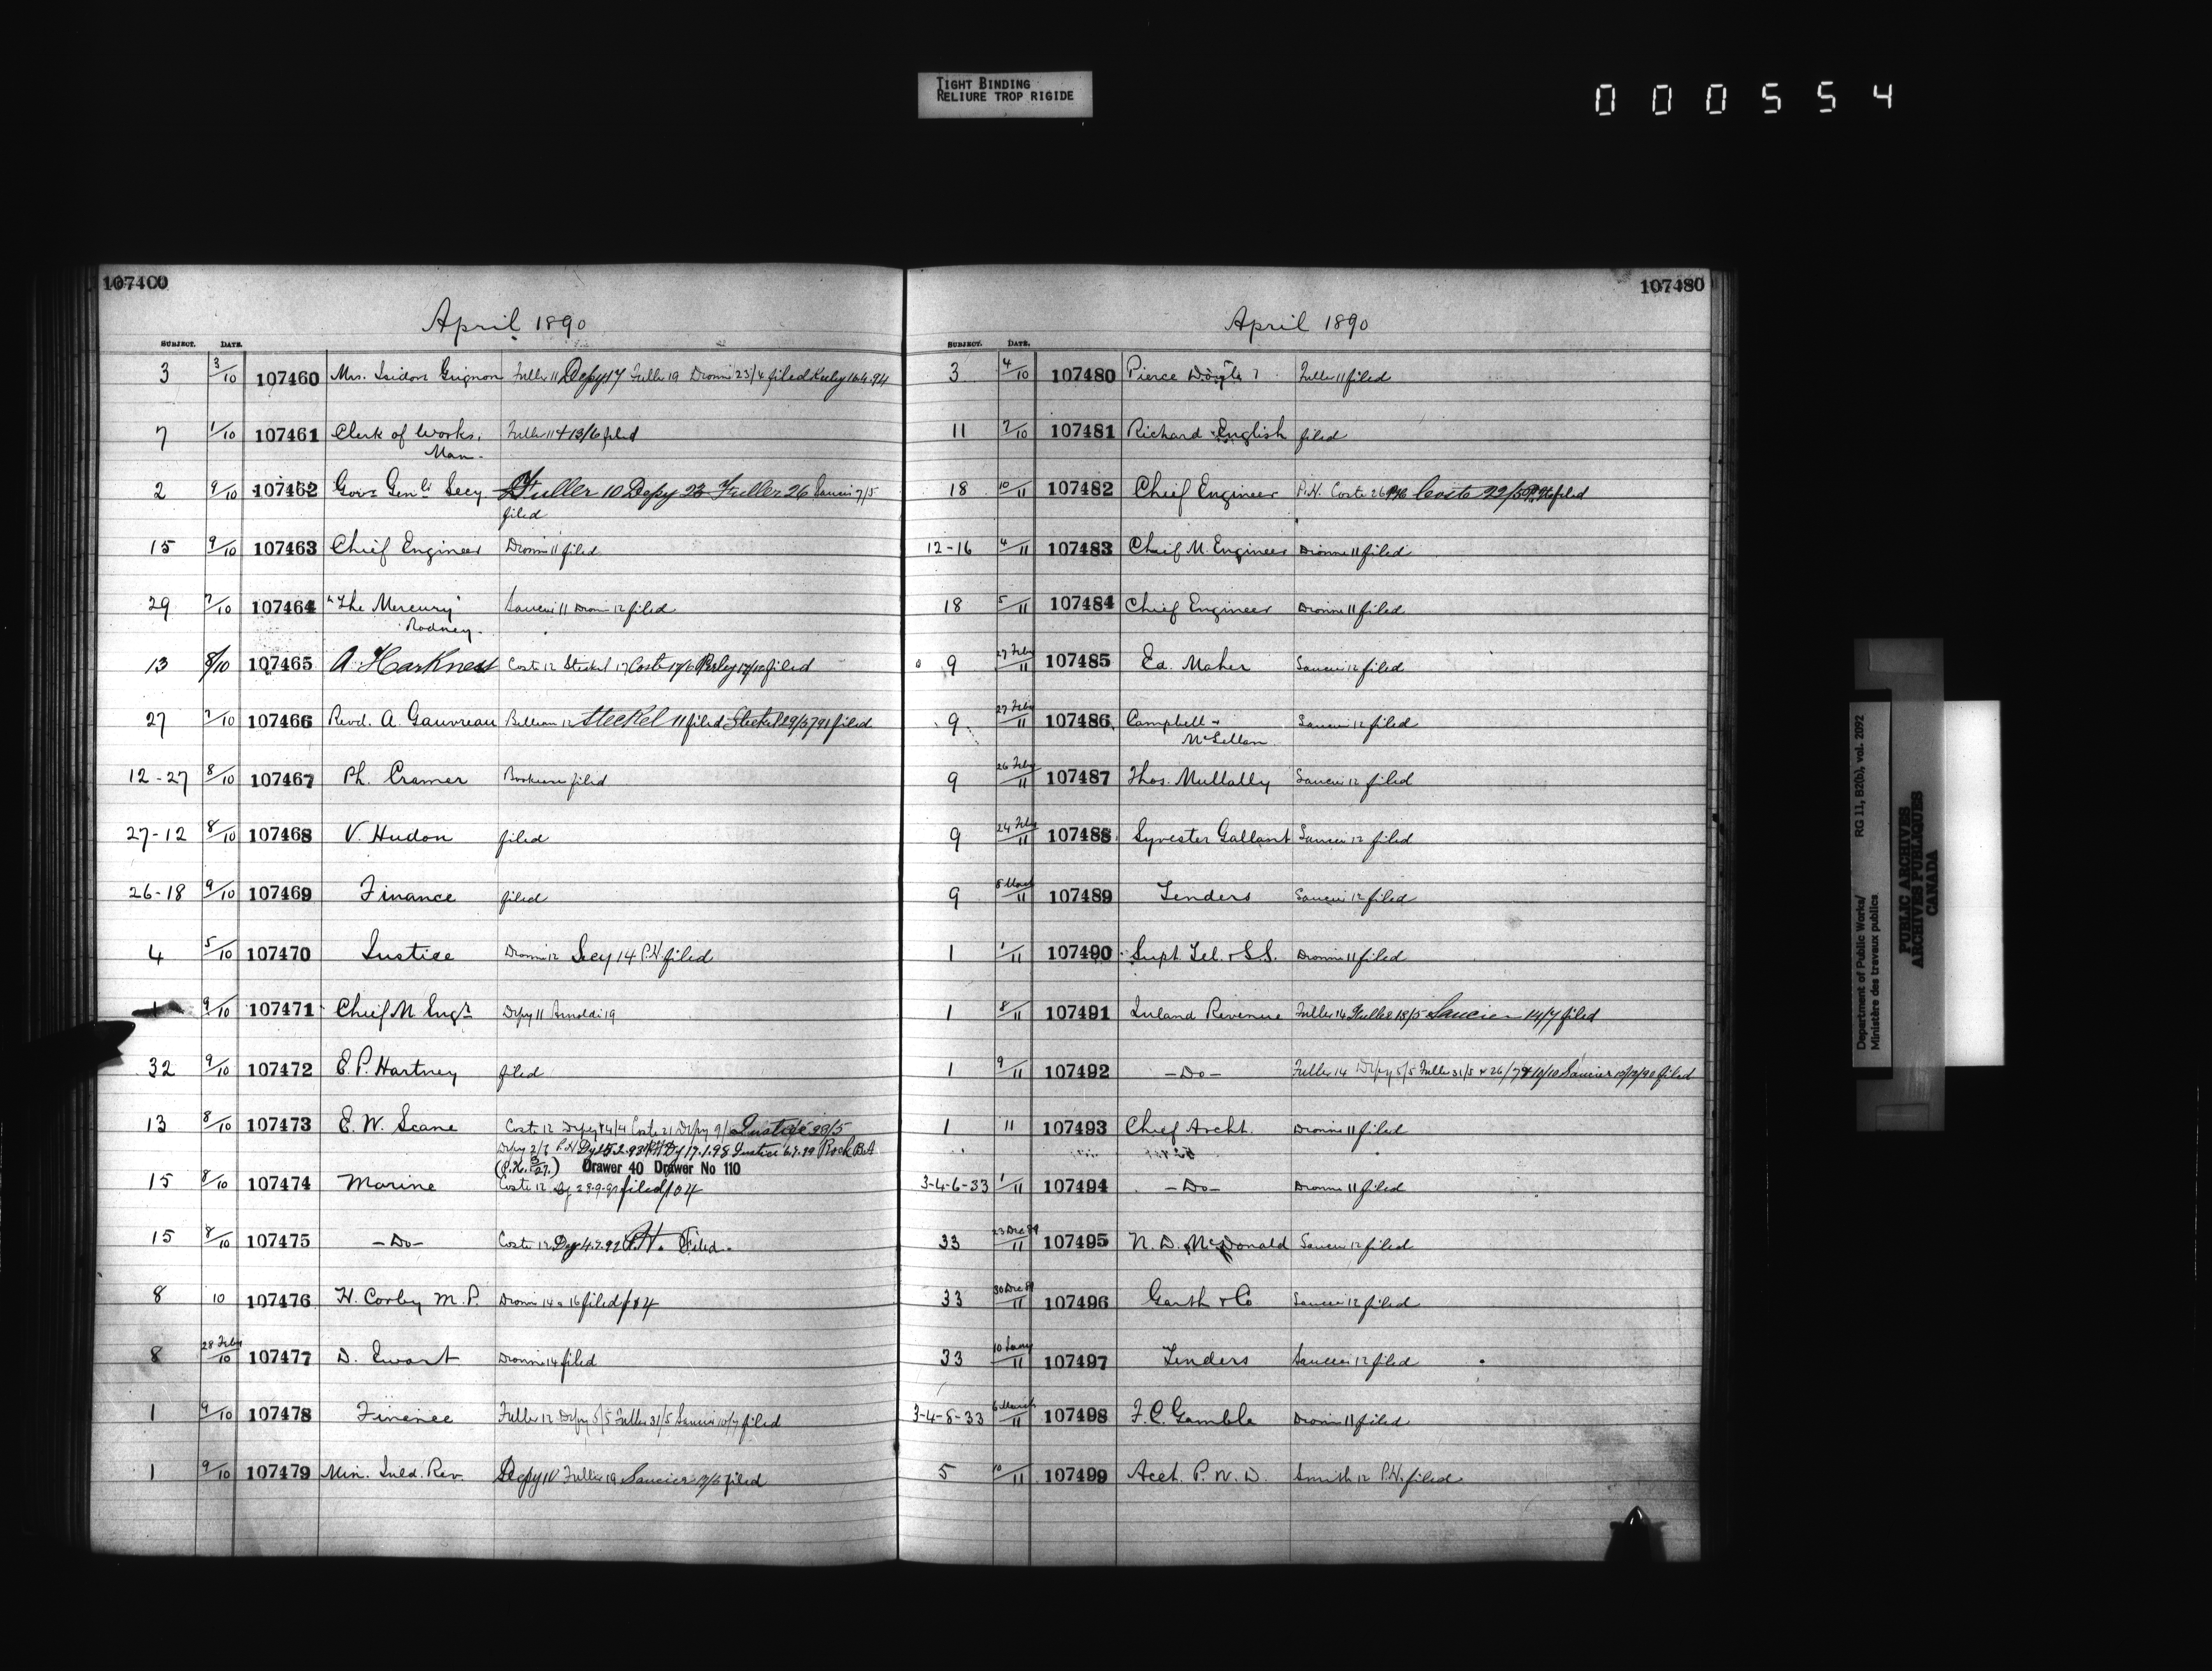 TIGHT BINDING
RELIURE TROP RIGIDE
000554
107400
April 1890
SUBJECT. DATE.
3 3/10 107460 Mrs. Isidore Grignon Fuller 11 Depy 17 Fuller 19 Dionne 23/4 filed
7 1/10 107461 Clerk of Works, Fuller 11 & 13/6 filed
Man.
2 9/10 107462 Govr Genls Secy Fuller 10 Depy 23 Fuller 26 Saucier 7/5
filed
15 9/10 107463 Chief Engineer Dionne 11 filed
29 7/10 107464 "The Mercury" Saucier 11 Dionne 12 filed
Rodney.
13 8/10 107465 A. Harkness Coste 12 Steckel 17 Coste 17/6 filed
27 7/10 107466 Revd. A. Gauvreau 12 Steckel 11 filed Steckel filed
12-27 8/10 107467 Ph. Cramer filed
27-12 8/10 107468 V. Hudon filed
26-18 9/10 107469 Finance filed
4 5/10 107470 Justice Dionne 12 Secy 14 P.H. filed
1 9/10 107471 Chief M Engr Depy 11 Arnoldi 19
32 9/10 107472 E. P. Hartney filed
13 8/10 107473 E. W. Scane Coste 12 Depy 14/4 Coste 21 Depy 9/5 Justice 23/5
Depy 2/7 P.H. Dy 17.1.98 Justice Rock B.A
Drawer 40 Drawer No 110
15 8/10 107474 Marine Coste 12 filed/04
15 8/10 107475 -Do- Coste 12 Dy 4.7.92 P.H. Filed.
8 10 107476 H. Corby M.P. Dionne 14 & 16 filed/04
8 28 Feby/10 107477 D. Ewart Dionne 14 filed
1 9/10 107478 Finance Fuller 12 Depy 5/5 Fuller 31/5 Saucier 10/7 filed
1 9/10 107479 Min. Inld. Rev. Depy 10 Fuller 19 Saucier filed
107480
April 1890
SUBJECT. DATE.
3 4/10 107480 Pierce Doyle Fuller 11 filed
11 7/10 107481 Richard English filed
18 10/11 107482 Chief Engineer P.H. Coste 26 Coste 22/5 filed
12-16 4/11 107483 Chief M. Engineer Dionne 11 filed
18 5/11 107484 Chief Engineer Dionne 11 filed
9 27 Feby/11 107485 Ed. Maher Saucier 12 filed
9 27 Feby/11 107486 Campbell & Saucier 12 filed
McLellan
9 26 Feby/11 107487 Thos. Mullally Saucier 12 filed
9 24 Feby/11 107488 Syvester Gallant Saucier 12 filed
9 5 March/11 107489 Tenders Saucier 12 filed
1 1/11 107490 Supt Tel. & S.S. Dionne 11 filed
1 8/11 107491 Inland Revenue Fuller 14 Fuller 13/5 Saucier 14/7 filed
1 9/11 107492 -Do- Fuller 14 Depy 5/5 Fuller 31/5 & 26/7 & 10/10 Saucier filed
1 11 107493 Chief Archt. Dionne 11 filed
3-4-6-33 1/11 107494 -Do- Dionne 11 filed
33 23 Dec 89/11 107495 N. D. McDonald Saucier 12 filed
33 30 Dec 89/11 107496 Garth & Co Saucier 12 filed
33 10 Jany/11 107497 Tenders Saucier 12 filed
3-4-8-33 6 March/11 107498 F. C. Gamble Dionne 11 filed
5 10/11 107499 Acct. P. W. D. Smith 12 P.H. filed
Department of Public Works/ RG 11, B2(b), vol. 2092
Ministère des travaux publics
PUBLIC ARCHIVES
ARCHIVES PUBLIQUES
CANADA